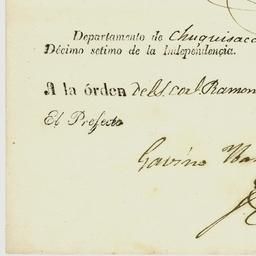 Departamento de Chuquisaca
Décimo setimo de la Independencia.
A la órden del S. Corl. Ramon
El Prefecto
Gavino